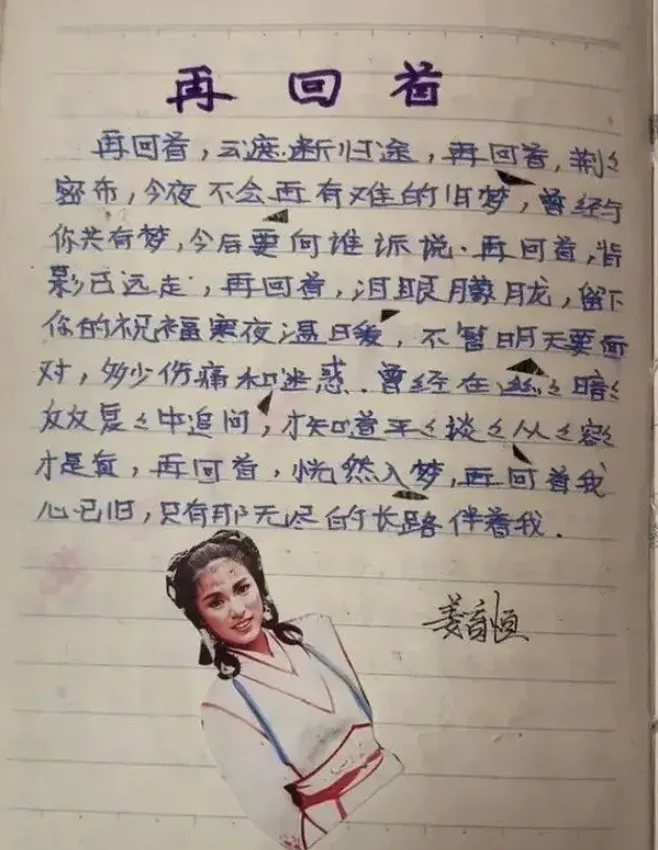 再回首
再回首，云遮断归途，再回首，荆く
密布，今夜不会再有难的旧梦，曾经与
你共有梦，今后要向谁诉说．再回首，背
影已远走，再回首，泪眼朦胧，留下
你的祝福寒夜温暖，不管明天要面
对，多少伤痛和迷惑．曾经在幽く暗く
反反复く中追问，才知道平く淡く从く容く
才是真，再回首，恍然入梦，再回首我
心已旧，只有那无尽的长路伴着我．
姜育恒